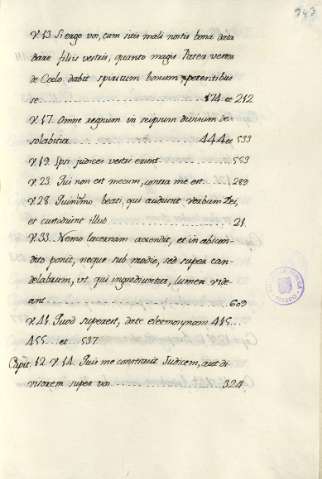 343
V. 13. Si ergo vos, cum sitis mali nostis bona data
dare filiis vestris, quanto magis Pater vester
de Coelo dabit spiritum bonum petentibus
se ........ 174 et 212
V. 17. Omne regnum in se ipsum divisum de-
solabitur ........ 444 et 533
V. 19. Ipsi judices vestri erunt ........ 553
V. 23. Qui non est mecum, contra me est. .. 289
V. 28. Quinimo beati, qui audiunt verbum Dei,
et custodiunt illud ........ 21.
V. 33. Nemo lucernam accendit, et in abscon-
dito ponit, neque sub modio, sed supra can-
delabrum, ut qui ingrediuntur, lumen vide-
ant ........ 609
V. 41. Quod superest, date eleemosynam 445...
455 et 537
Capit. 12. V. 14. Quis me constituit Judicem, aut di-
visorem super vos ........ 324